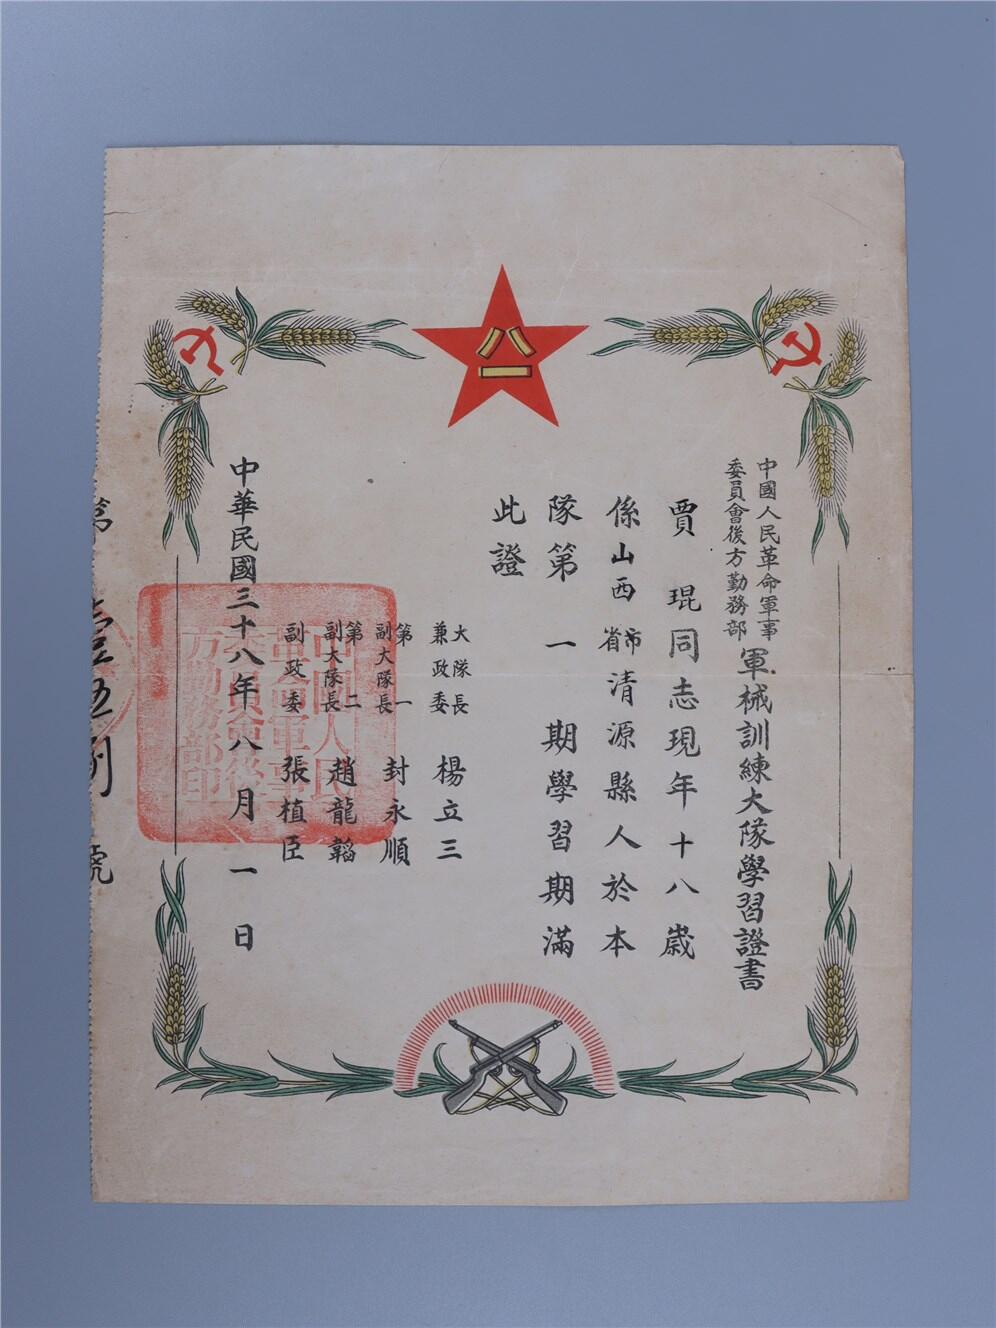 八一
中國人民革命軍事
委員會後方勤務部
軍械訓練大隊學習證書
賈琨同志現年十八歲
係山西省市清源縣人於本
隊第一期學習期滿
此證
大隊長
兼政委
楊立三
第一
副大隊長
封永順
第二
副大隊長
趙龍韜
副政委
張植臣
中華民國三十八年八月一日
中國人民
革命軍事
委員會後
方勤務部印